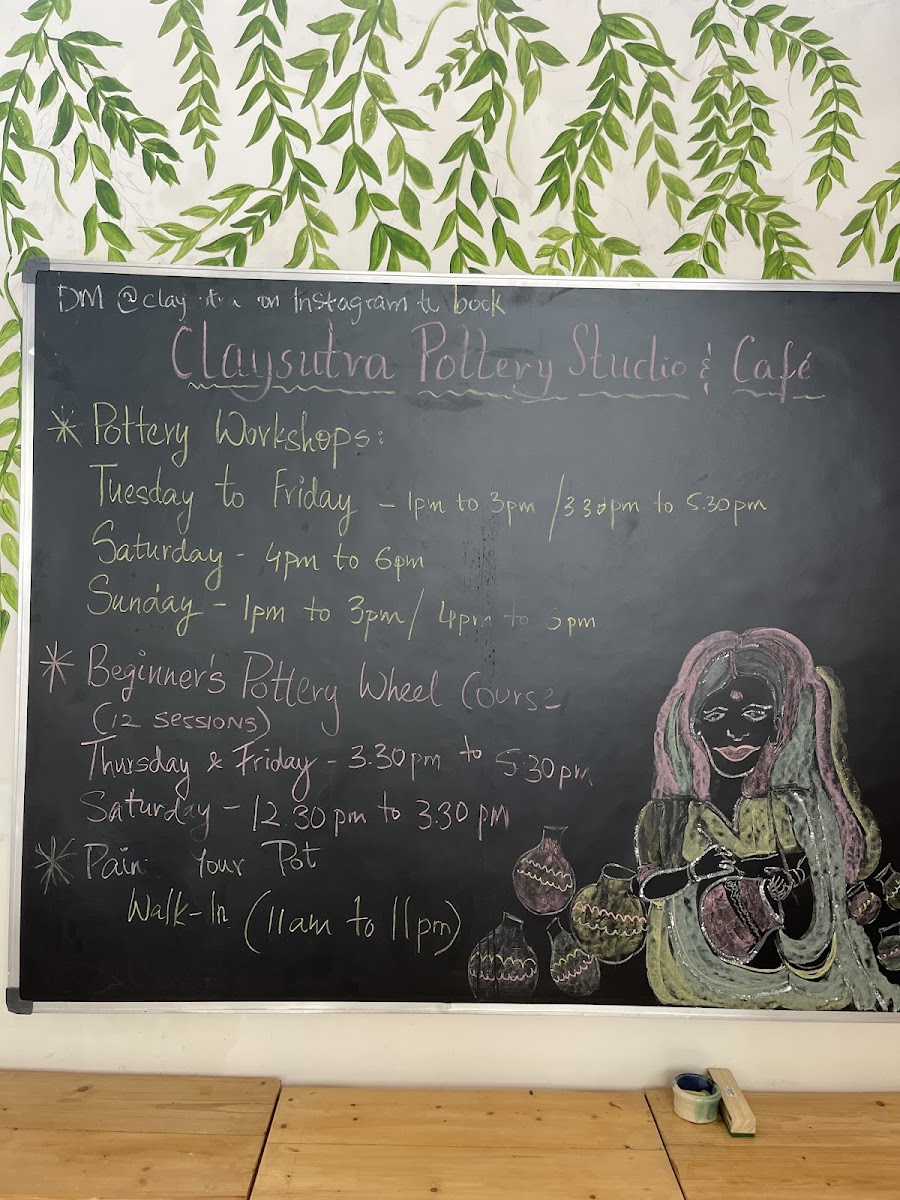 DM @clay on Instagram to book
Claysutra Pottery Studio & Café
* Pottery Workshops:
Tuesday to Friday - 1pm to 3pm / 3 30pm to 5.30pm
Saturday - 4pm to 6pm
Sunday - 1pm to 3pm / 4pm to
* Beginner's Pottery Wheel Course
(12 SESSIONS)
Thursday & Friday - 3.30pm to 5:30pm
Saturday - 12.30pm to 3.30 PM
* Pain Your Pot
Walk-In (11am to 11pm)